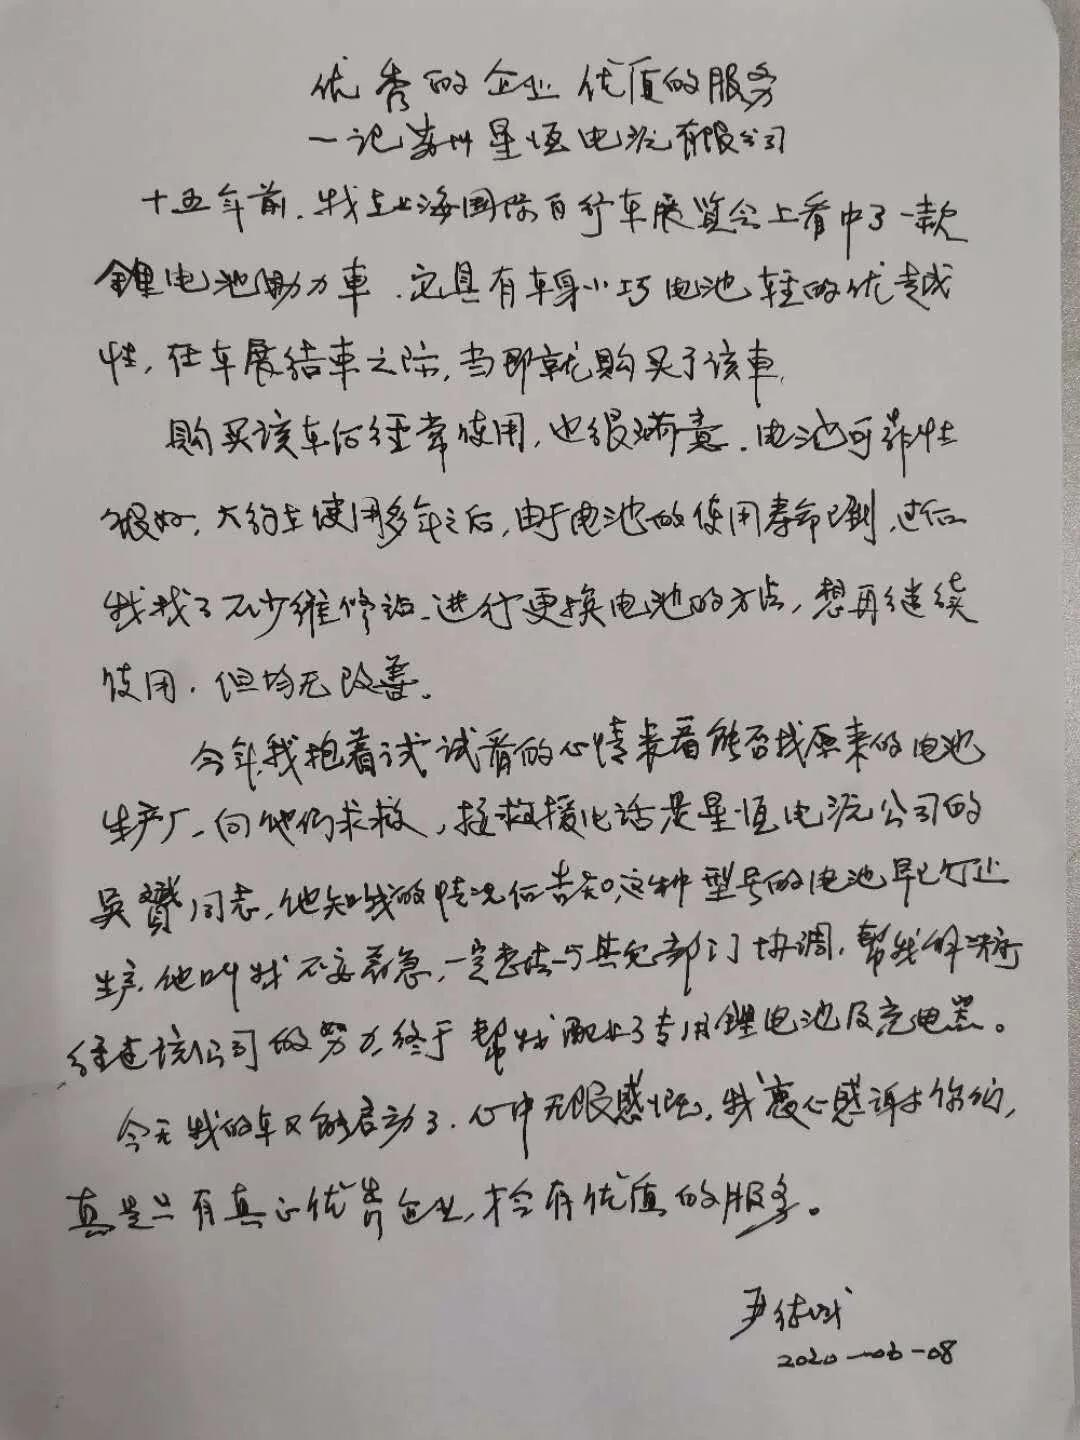 优秀的企业 优质的服务
一记苏州星恒电源有限公司
十五年前，我在上海国际自行车展览会上看中了一款
鋰电池助力車，它具有车身小巧电池轻的优越
性，在车展结束之际，当即就购买了该車，
购买该车后经常使用，也很满意，电池可靠性
很好，大约在使用多年之后，由于电池的使用寿命已到，过后
我找了不少维修站，进行更换电池的方法，想再继续
使用，但均无改善。
今年，我抱着试试看的心情来看能否找原来的电池
生产厂，向他们求救，接救援电话是星恒电源公司的
吴赟同志，他知我的情况后告知，这种型号的电池早已停止
生产，他叫我不要着急，一定想法与其它部门协调，帮我解决，
经过该公司的努力，终于帮我配上了专用鋰电池及充电器。
今天我的车又能启动了，心中无限感慨，我衷心感谢你们，
真是只有真正优秀企业，才会有优质的服务。
2020-06-08